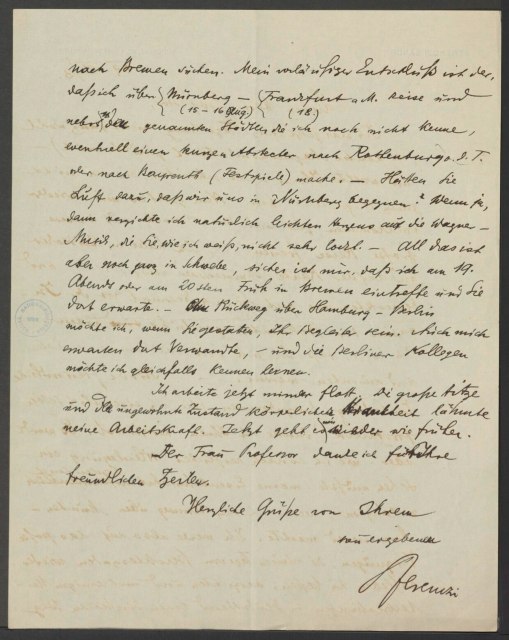 nach Bremen suchen. Mein vorläufiger Entschluß ist der,
daß ich über Nürnberg – Frankfurt a.M. reise und
(15–16 Aug) (18.)
nebst den genannten Städten, die ich noch nicht kenne,
eventuell einen kurzen Abstecher nach Rothenburg o. d. T.
oder nach Bayreuth (Festspiele) mache. – Hätten Sie
Lust dazu, daß wir uns in Nürnberg begegnen? Wenn ja,
dann verzichte ich natürlich leichten Herzens auf die Wagner-
Musik, die Sie, wie ich weiß, nicht sehr lockt. – All das ist
aber noch ganz in Schwebe, sicher ist nur, daß ich am 19.
Abends oder am 20sten Früh in Bremen eintreffe und Sie
dort erwarte. – Rückweg über Hamburg – Berlin
möchte ich, wenn Sie gestatten, Ihr Begleiter sein. Auch mich
erwarten dort Verwandte, – und die Berliner Kollegen
möchte ich gleichfalls kennen lernen.
Ich arbeite jetzt minder flott. Die große Hitze
und der ungewohnte Zustand körperlicher Krankheit lähmte
meine Arbeitskraft. Jetzt geht es wieder wie früher.
Der Frau Professor danke ich für Ihre
freundlichen Zeilen.
Herzliche Grüße von Ihrem
ergebenen
Ferenczi